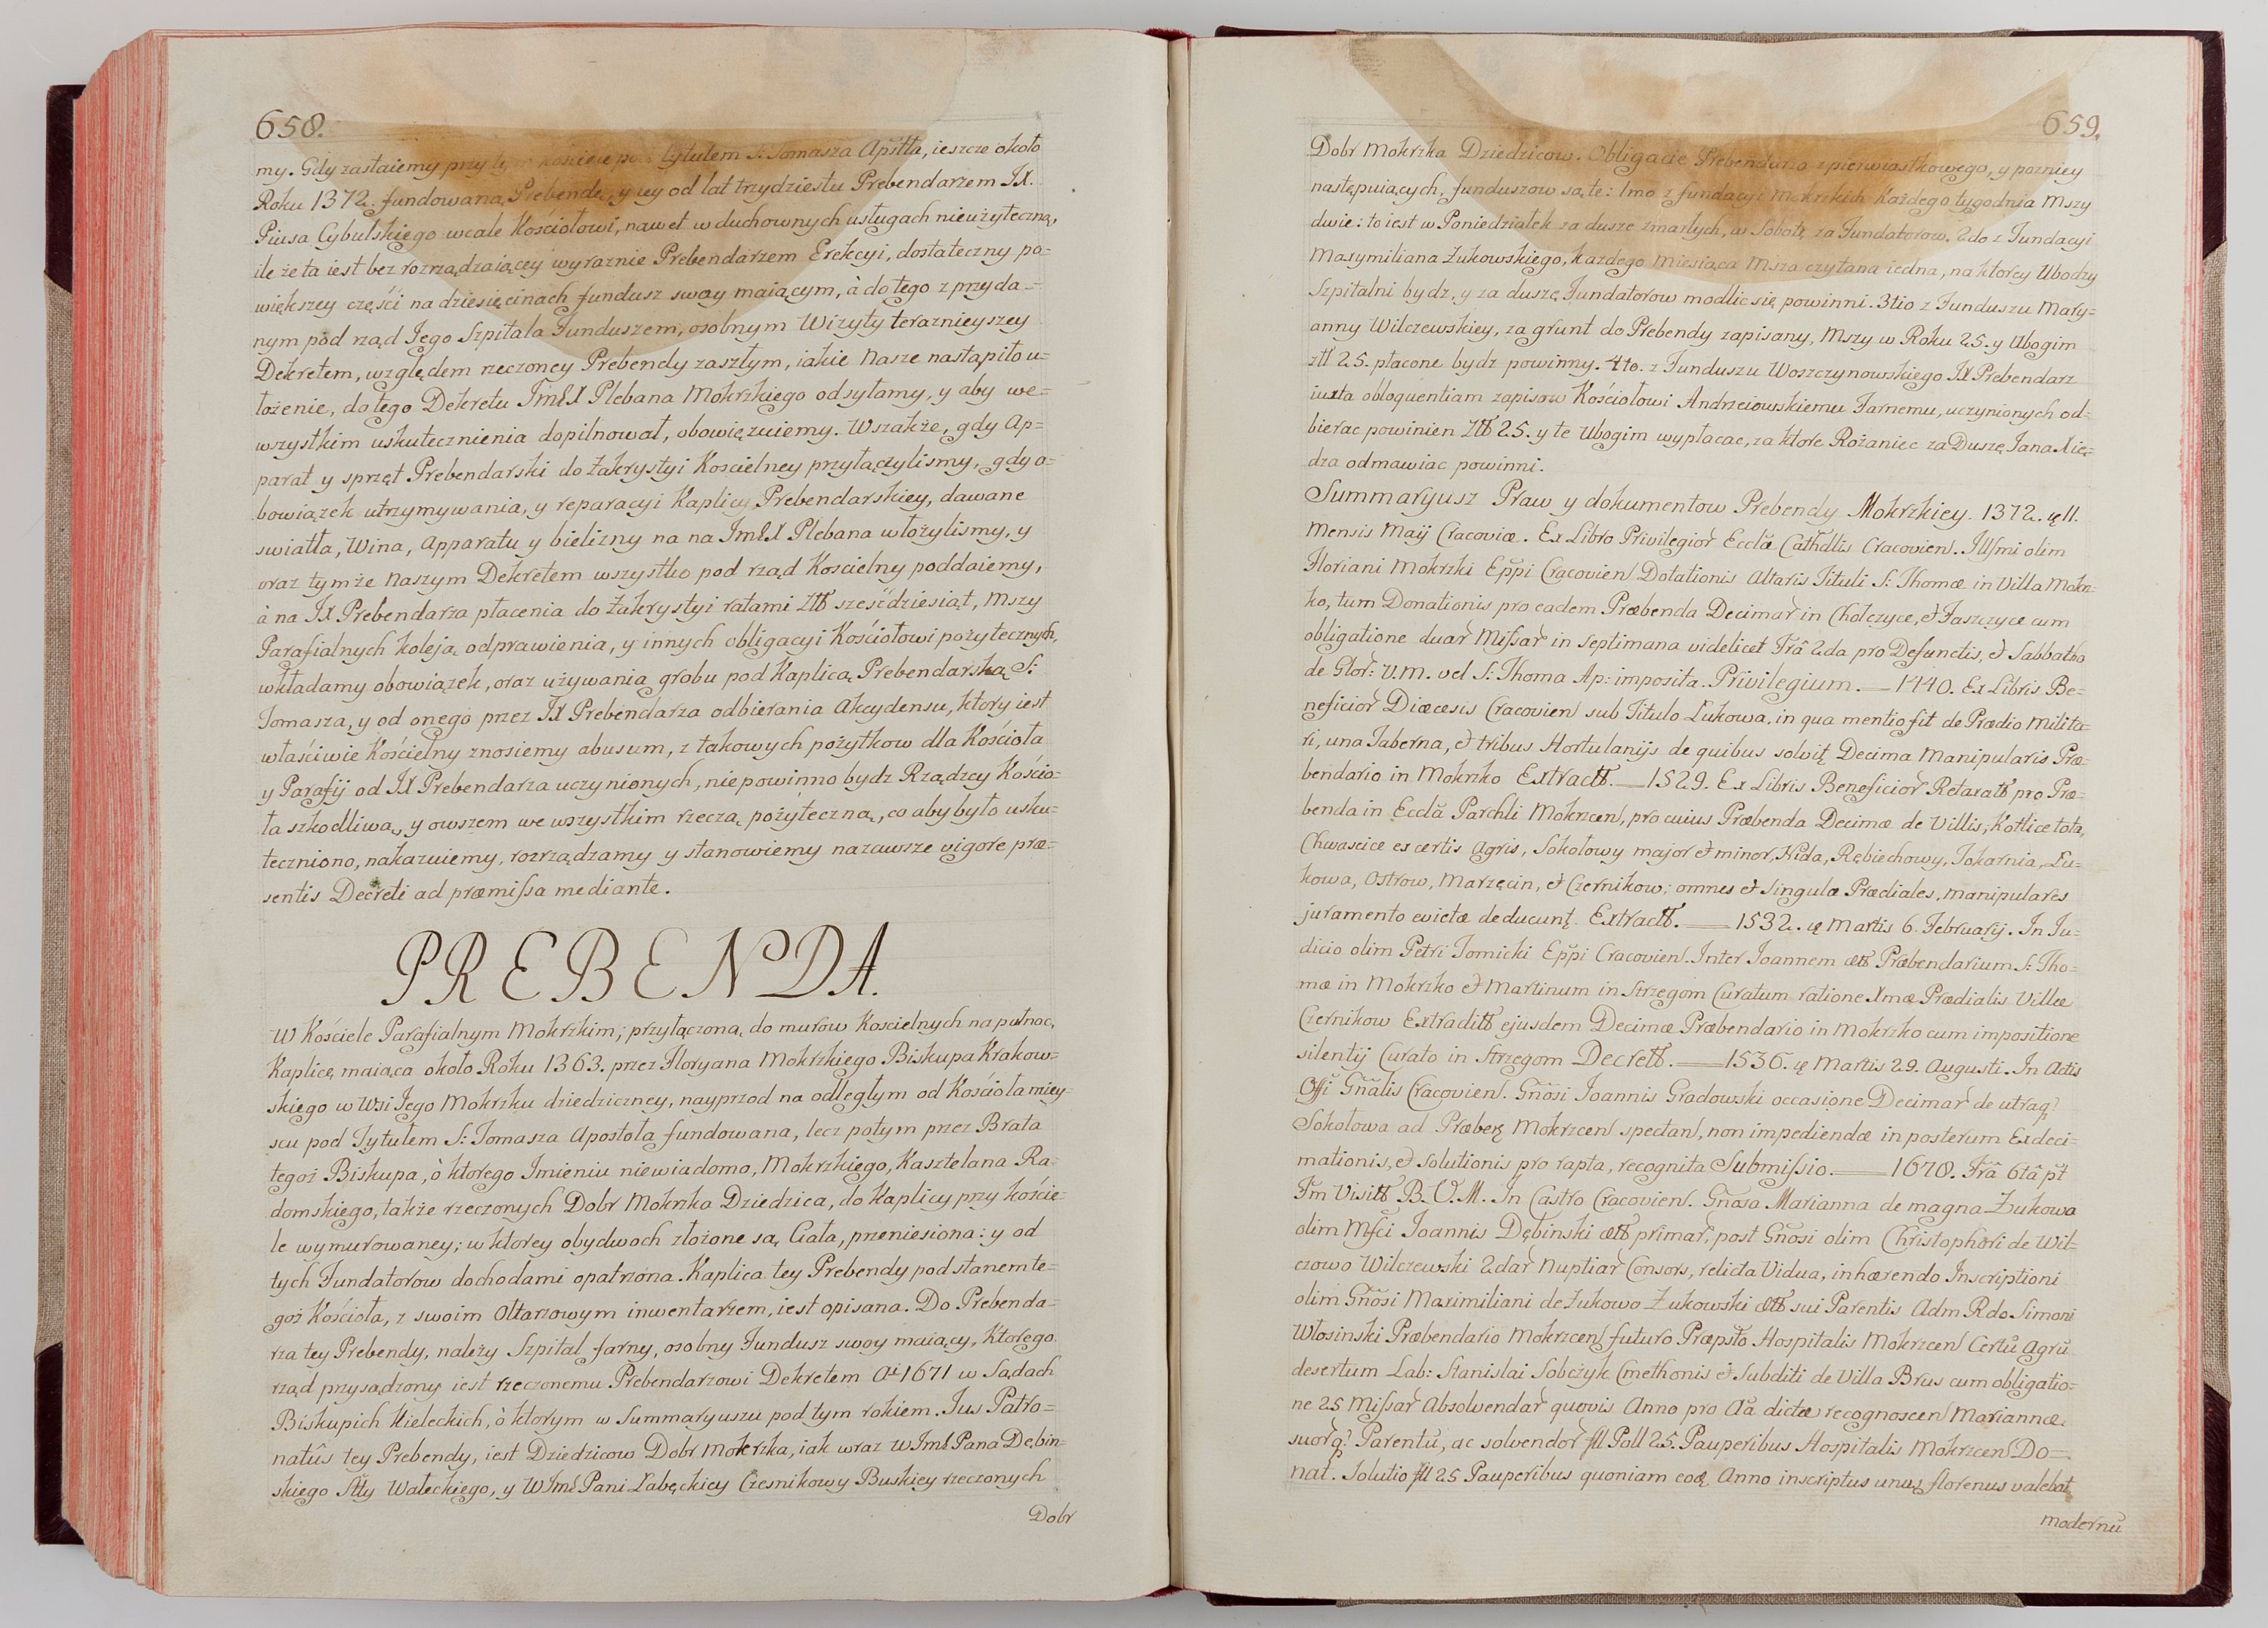 658.
my. Gdy zastaiemy przy tytułem S: Tomasza Apsttła, ieszcze około
Roku 1372. fundowaną Prebendę, y iey od lat trzydziestu Prebendarzem JX.
Piusa Cybulskiego wcale Kościołowi, nawet w duchownych usługach nieużyteczną,
ile że ta iest bez rozrządzaiącey wyraznie Prebendarzem Erekcyi, dostateczny po=
większey części na dziesięcinach fundusz swoy maiącym, à do tego z przyda=
nym pod rząd Jego Szpitala Funduszem, osobnym Wizyty teraznieyszey
Dekretem, względem rzeczoney Prebendy zaszłym, iakie Nasze nastąpiło u=
łożenie, do tego Dekretu JmX Plebana Mokrzkiego odsyłamy, y aby we=
wszystkim uskutecznienia dopilnował, obowięzuiemy. Wszakże, gdy Ap=
parat y sprzęt Prebendarski do Zakrystyi Koscielney przyłączylismy, gdy o=
bowiązek utrzymywania, y reparacyi Kaplicy Prebendarskiey, dawane
swiatła, Wina, Apparatu y bielizny na na JmX Plebana włożylismy, y
oraz tymże Naszym Dekretem wszystko pod rząd Koscielny poddaiemy,
à na JX Prebendarza płacenia do Zakrystyi ratami Złtt sześćdziesiąt, Mszy
Parafialnych koleją odprawienia, y innych obligacyi Kościołowi pożytecznych,
wkładamy obowiązek, oraz używania grobu pod Kaplicą Prebendarską S:
Tomasza, y od onego przez JX Prebendarza odbierania Akcydensu, ktory iest
właściwie Kościelny znosiemy abusum, z takowych pożytkow dla Kościoła
y Parafij od JX Prebendarza uczynionych, niepowinno bydz Rządzcy Kościo=
ła szkodliwą, y owszem we wszystkim rzeczą pożyteczną, co aby było usku=
teczniono, nakazuiemy, rozrządzamy y stanowiemy nazawsze vigore præ=
sentis Decreti ad præmissa mediante.
PREBENDA.
W Kościele Parafialnym Mokrzkim; przyłączoną, do murow Koscielnych na pułnoc,
Kaplicę maiąca około Roku 1363. przez Floryana Mokrzkiego Biskupa Krakow=
skiego w Wsi Jego Mokrzku dziedziczney, nayprzod na odległym od Kościoła miey=
scu pod Tytułem S: Tomasza Apostoła fundowana, lecz potym przez Brata
tegoż Biskupa, ò ktorego Imieniu niewiadomo, Mokrzkiego, Kasztelana Ra=
domskiego, także rzeczonych Dobr Mokrzka Dziedzica, do Kaplicy przy koście=
le wymurowaney; w ktorey obydwoch złożone są Ciała, przeniesiona: y od
tych Fundatorow dochodami opatrzona. Kaplica tey Prebendy pod stanem te=
goż Kościoła, z swoim Ołtarzowym inwentarzem, iest opisana. Do Prebenda=
rza tey Prebendy, należy Szpital farny, osobny Fundusz swoy maiący, Ktorego
rząd przysądzony iest rzeczonemu Prebendarzowi Dekretem Ai 1671 w Sądach
Biskupich Kieleckich, ò ktorym w Summaryuszu pod tym rokiem. Jus Patro=
natûs tey Prebendy, iest Dziedzicow Dobr Mokrzka, iak wraz WJmć Pana Dębin=
skiego Stty Wałeckiego, y WJmć Pani Łabęckiey Czesnikowy Buskiey rzeczonych
Dobr
659.
Dobr Mokrzka Dziedzicow. Obligacie Prebendarza z pierwiastkowego, y pozniey
następuiących, funduszow są te: 1mo z fundacyi Mokrzkich Każdego tygodnia Mszy
dwie: to iest w Poniedziałek za dusze zmarłych, w Sobotę za Fundatorow. 2do z Fundacyi
Maxymiliana Żukowskiego, każdego Miesiąca Msza czytana iedna, na ktorey Ubodzy
Szpitalni bydz, y za duszę Fundatorow modlic się powinni. 3tio z Funduszu Mary=
anny Wilczewskiey, za grunt do Prebendy zapisany, Mszy w Roku 25. y Ubogim
złł 25. płacone bydz powinny. 4to. z Funduszu Woszczynowskiego JX Prebendarz
iuxta obloquentiam zapisow Kościołowi Andrzeiowskiemu Farnemu, uczynionych od=
bierac powinien Złtt 25. y te Ubogim wypłacac, za ktore Rożaniec za Duszę Jana Xię=
dza odmawiac powinni.
Summaryusz Praw y dokumentow Prebendy Mokrzkiey. 1372. 11.
Mensis Maij Cracoviæ. Ex Libro Privilegior Ecclæ Cathdlis Cracovien. Illsmi olim
Floriani Mokrzki Eppi Cracovien Dotationis Altaris Tituli S: Thomæ in Villa Mokrz=
ko, tum Donationis pro eadem Præbenda Decimar in Chołczyce, et Jaszczyce cum
obligatione duar Missar in septimana videlicet Frâ 2da pro Defunctis, et Sabbatho
de Glor: V.M. vel S: Thoma Ap: imposita. Privilegium. — 1440. Ex Libris Be=
neficior Diæcesis Cracovien sub Titulo Łukowa, in qua mentio fit de Prædio Milita=
ri, una Taberna, et tribus Hortulanijs de quibus solvit Decima Manipularis Præ=
bendario in Mokrzko Extractt. — 1529. Ex Libris Beneficior Retaxatt pro Præ=
benda in Ecclâ Parchli Mokrzcen, pro cuius Præbenda Decimæ de Villis, Kotlice tota,
Chwascice ex certis Agris, Sokołowy major et minor, Nida, Rębiechowy, Tokarnia, Łu=
kowa, Ostrow, Marzęcin, et Czernikow; omnes et singulæ Prædiales, manipulares
juramento evictæ deducunt. Extractt. — 1532. Martis 6. Februarij. In Ju=
dicio olim Petri Tomicki Eppi Cracovien. Inter Joannem Præbendarium S: Tho=
mæ in Mokrzko et Martinum in Strzegom Curatum ratione Xmæ Prædialis Villæ
Czernikow Extraditt ejusdem Decimæ Præbendario in Mokrzko cum impositione
silentij Curato in Strzegom Decrett. — 1536. Martis 29. Augusti. In Actis
Offi Gnalis Cracovien. Gnosi Joannis Gradowski occasione Decimar de utraq
Sokołowa ad Præben Mokrzcen spectan, non impediendæ in posterum Exdeci=
mationis, et solutionis pro rapta, recognita Submissio. — 1678. Frâ 6tâ pt
Fm Visitt B.V.M. In Castro Cracovien. Gnosa Marianna de magna Żukowa
olim Mfci Joannis Dębinski primar, post Gnosi olim Christophori de Wil=
czowo Wilczewski 2dar Nuptiar Consors, relicta Vidua, inhærendo Inscriptioni
olim Gnosi Maximiliani de Żukowo Żukowski sui Parentis Adm Rdo Simoni
Włosinski Præbendario Mokrzcen futuro Præpsto Hospitalis Mokrzcen Certu Agru
desertum Lab: Stanislai Sobczyk Cmethonis et Subditi de Villa Brus cum obligatio=
ne 25 Missar Absolvendar quovis Anno pro Aa dictæ recognoscen Mariannæ,
suorq Parentu, ac solvendor fll Poll 25. Pauperibus Hospitalis Mokrzcen Do=
nat. Solutio fll 25 Pauperibus quoniam eod Anno inscriptus unus florenus valebat
modernu